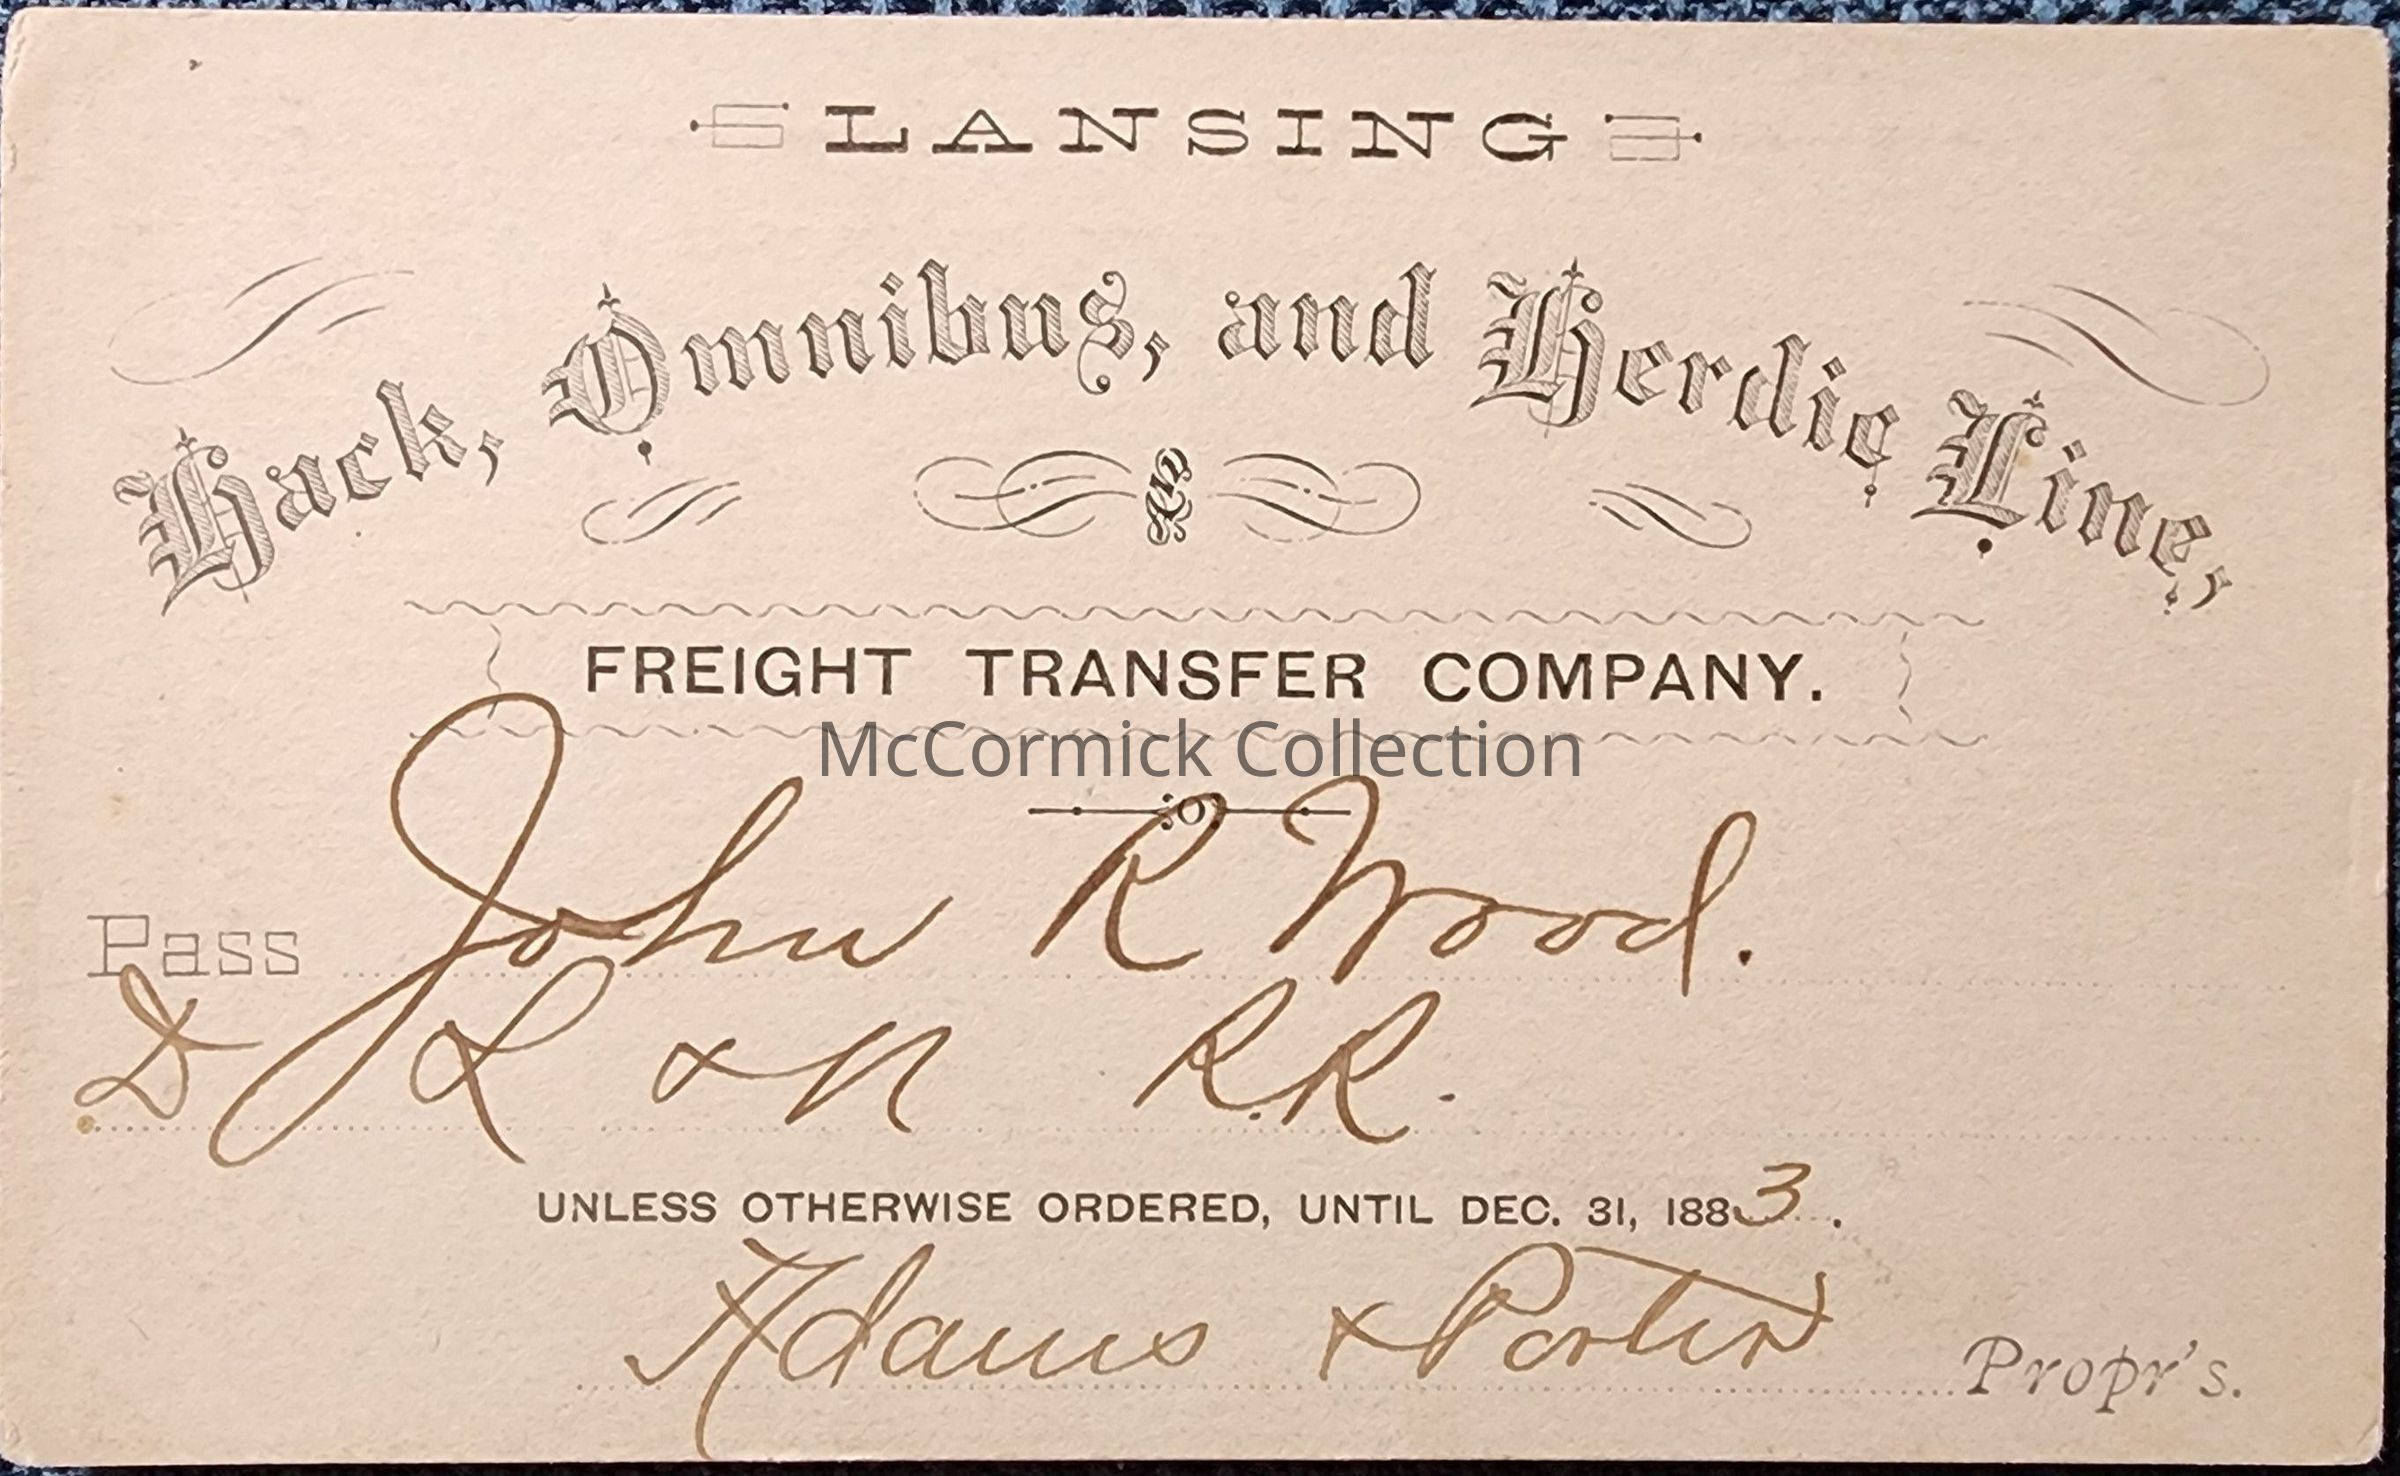 LANSING
Hack, Omnibus, and Herdic Line,
FREIGHT TRANSFER COMPANY.
McCormick Collection
:o:
Pass John R Wood.
D L & N R.R.
UNLESS OTHERWISE ORDERED, UNTIL DEC. 31, 1883.
Adams & Porter Propr's.